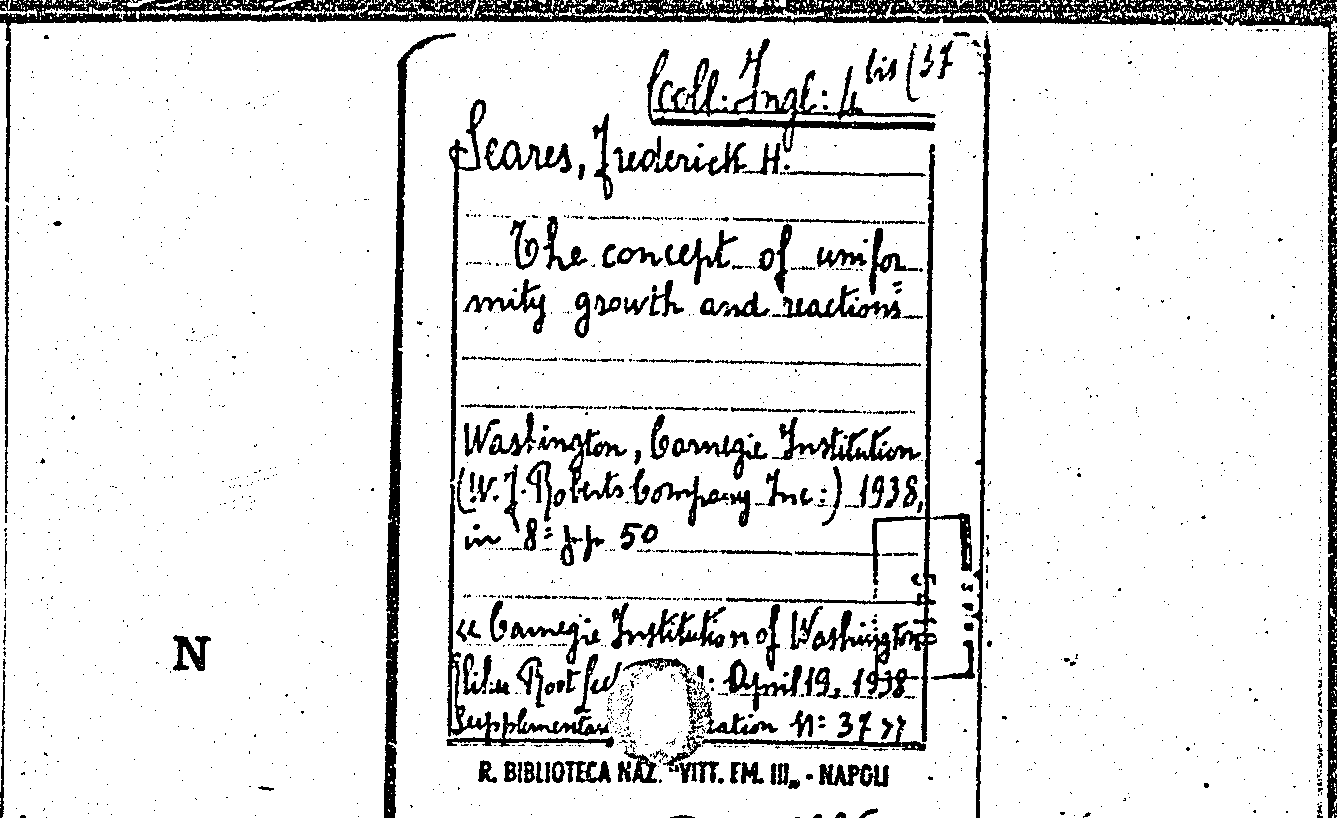 Coll: Ingl: 4 bis (37
Seares, Frederick H.
The concept of unifor=
mity growth and reactions
Washington, Carnegie Institution
(W. F. Roberts Company Inc:) 1938,
in 8= pp 50
« Carnegie Institution of Washington
Elihu Root April 19, 1938
N
Supplementar ation N: 37 »
R. BIBLIOTECA NAZ. "VITT. EM. III„ - NAPOLI